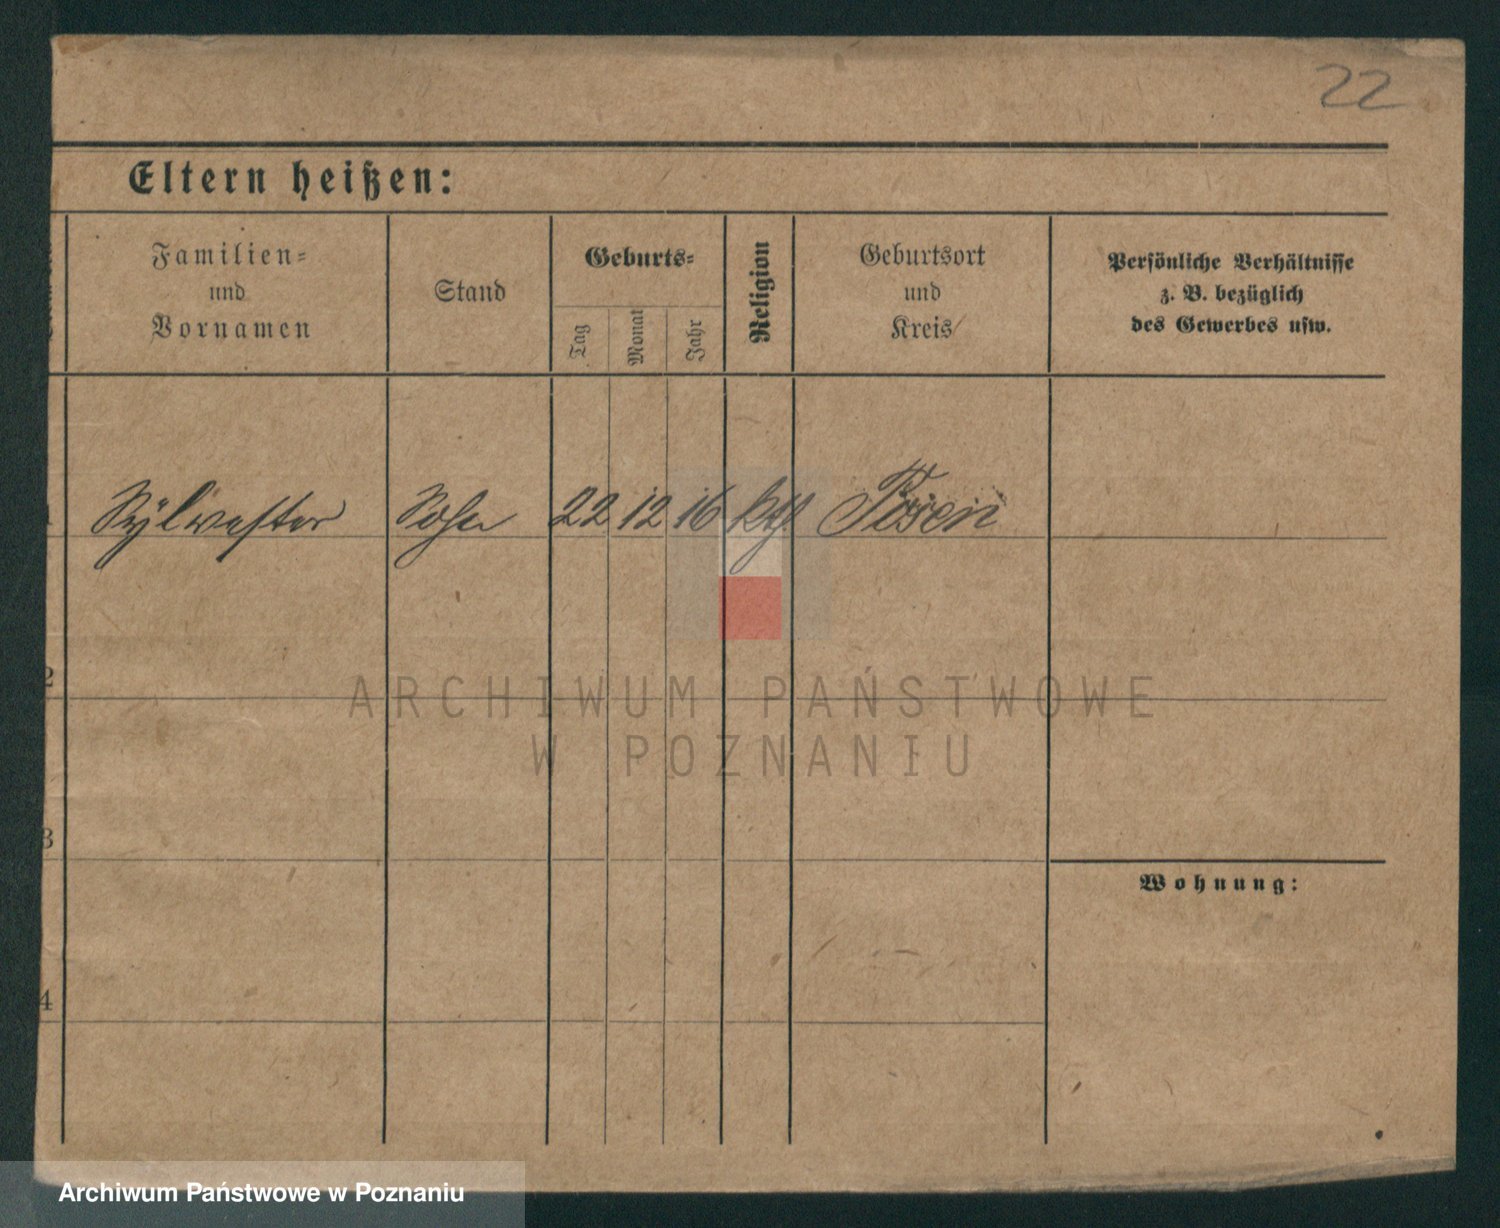 22
Eltern heißen:
Familien=
und
Vornamen
Stand
Geburts=
Tag
Monat
Jahr
Religion
Geburtsort
und
Kreis
Persönliche Verhältnisse
z. B. bezüglich
des Gewerbes usw.
1 Sylvester Sohn 22 12 16 kth Posen
2
3
Wohnung:
4
ARCHIWUM PAŃSTWOWE
W POZNANIU
Archiwum Państwowe w Poznaniu